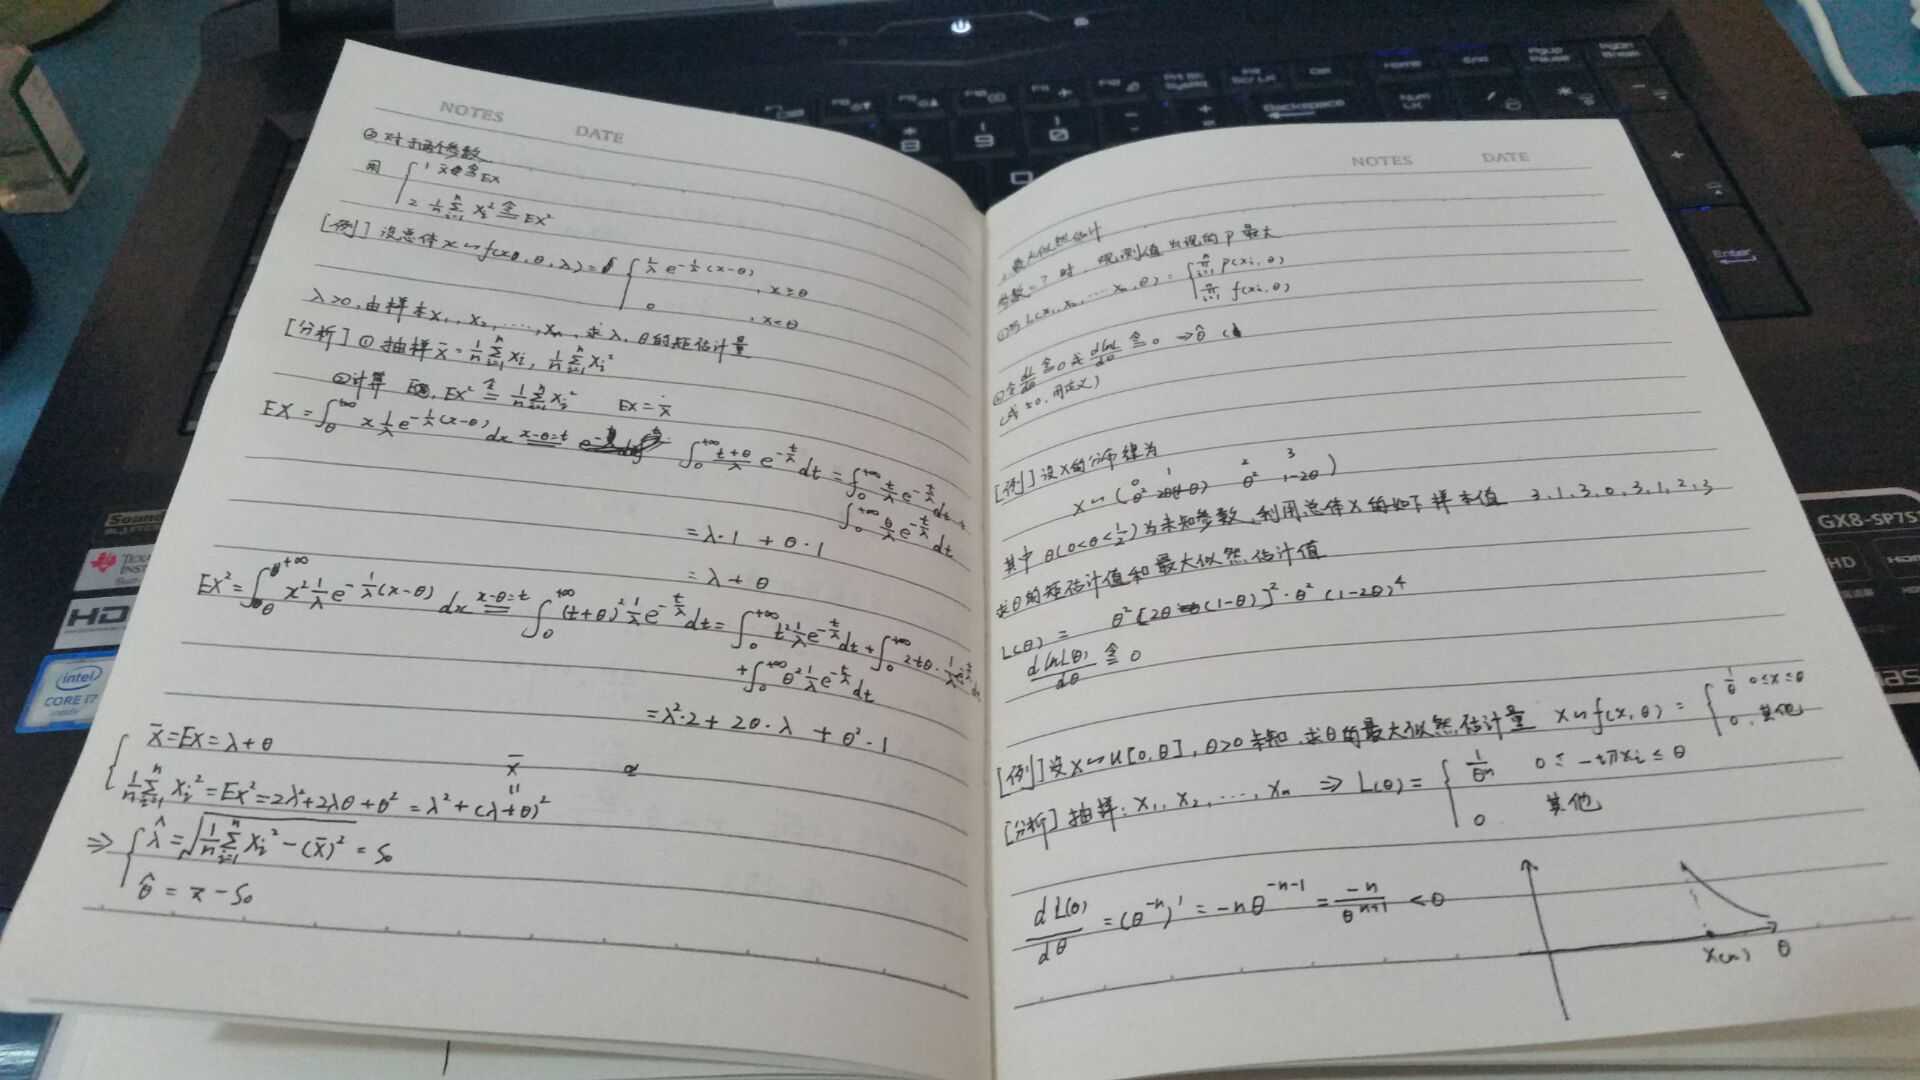 NOTES DATE
② 对于两个参数
用 { 1 x̄ 令= EX
2 1/n ∑(i=1→n) Xi² 令= EX²
[例] 设总体 X ~ f(x, θ, λ) = { 1/λ e^(-1/λ(x-θ)), x≥θ
0, x<θ
λ>0, 由样本 X₁, X₂, ..., Xn, 求 λ, θ 的矩估计量
[分析] ① 抽样 x̄ = 1/n ∑(i=1→n) Xi, 1/n ∑(i=1→n) Xi²
② 计算 EX² 令= 1/n ∑(i=1→n) Xi² EX = x̄
EX = ∫_θ^(+∞) x 1/λ e^(-1/λ(x-θ)) dx x-θ=t == ∫_0^(+∞) (t+θ)/λ e^(-t/λ) dt = ∫_0^(+∞) t/λ e^(-t/λ) dt +
∫_0^(+∞) θ/λ e^(-t/λ) dt
= λ·1 + θ·1
= λ + θ
EX² = ∫_θ^(+∞) x² 1/λ e^(-1/λ(x-θ)) dx x-θ=t == ∫_0^(+∞) (t+θ)² 1/λ e^(-t/λ) dt = ∫_0^(+∞) t² 1/λ e^(-t/λ) dt + ∫_0^(+∞) 2tθ · 1/λ e^(-t/λ) dt
+ ∫_0^(+∞) θ² 1/λ e^(-t/λ) dt
= λ²·2 + 2θ·λ + θ²·1
{ x̄ = EX = λ + θ
x̄
1/n ∑(i=1→n) Xi² = EX² = 2λ² + 2λθ + θ² = λ² + (λ+θ)²
⇒ { λ̂ = √(1/n ∑(i=1→n) Xi² - (x̄)²) = S₀
θ̂ = x̄ - S₀
NOTES DATE
最大似然估计
参数=? 时, 观测值出现的 P 最大
① 写 L(x₁, x₂, ... xn, θ) = { ∏(i=1→n) P(xi, θ)
∏(i=1→n) f(xi, θ)
② 令 dL/dθ 令= 0 或 dlnL/dθ 令= 0 ⇒ θ̂ (
(或 ≠0, 用定义)
[例] 设 X 的分布律为
0 1 2 3
X ~ ( θ² 2θ(1-θ) θ² 1-2θ )
其中 θ (0<θ<1/2) 为未知参数, 利用总体 X 的如下样本值 3, 1, 3, 0, 3, 1, 2, 3
求 θ 的矩估计值和最大似然估计值
L(θ) = θ² [2θ(1-θ)]² · θ² (1-2θ)⁴
d lnL(θ)/dθ 令= 0
[例] 设 X ~ U[0, θ], θ>0 未知, 求 θ 的最大似然估计量 X ~ f(x, θ) = { 1/θ 0≤x≤θ
0, 其他
[分析] 抽样: X₁, X₂, ..., Xn ⇒ L(θ) = { 1/θⁿ 0 ≤ 一切 Xi ≤ θ
0 其他
dL(θ)/dθ = (θ^(-n))' = -nθ^(-n-1) = -n/θ^(n+1) < 0
X(n) θ
Backspace
Enter
Home
End
PgUp
Pause
PgDn
Break
Num
LK
GX8-SP7S1
HD
HD
intel
CORE i7
inside